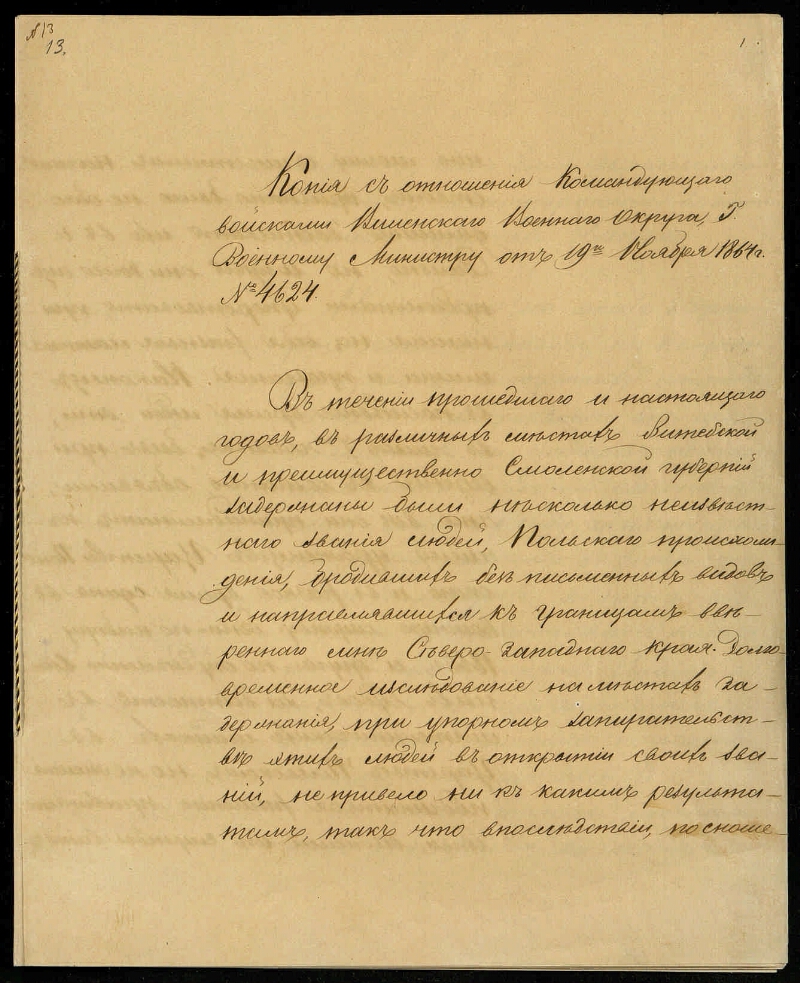 №13
13.
1.
Копія съ отношенія Командующаго
войсками Виленскаго Военнаго Округа, Г.
Военному Министру отъ 19го Ноября 1864 г.
№ 4624.
Въ теченіи прошедшаго и настоящаго
годовъ, въ различныхъ мѣстахъ Витебской
и преимущественно Смоленской губерній
задержаны были нѣсколько неизвѣст-
наго званія людей, Польскаго происхож-
денія, бродившихъ безъ письменныхъ видовъ
и направлявшихся къ границамъ ввѣ-
реннаго мнѣ Сѣверо-западнаго края. Долго-
временное изслѣдованіе на мѣстахъ за-
держанія, при упорномъ запирательст-
вѣ этихъ людей въ открытіи своихъ зва-
ній, не привело ни къ какимъ результа-
тамъ, такъ что впослѣдствіи, по сноше-